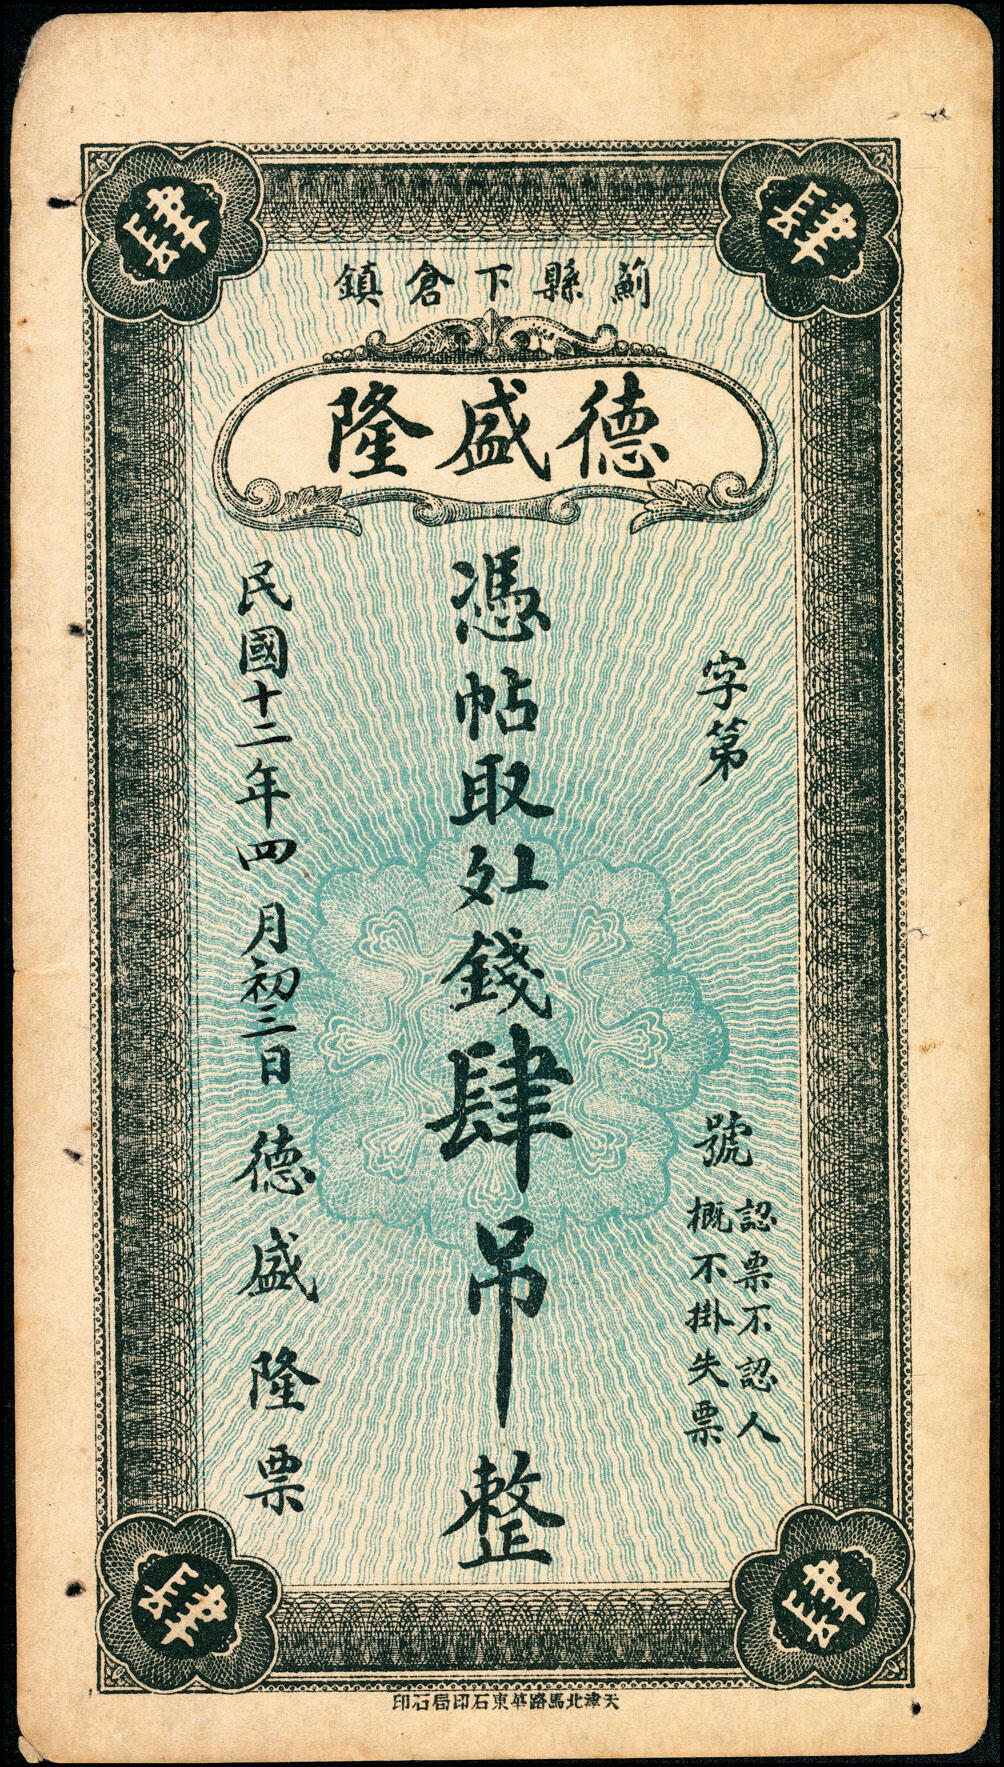 肆
肆
薊縣下倉鎮
德盛隆
字第
號
認票不認人
概不掛失票
憑帖取
錢肆吊整
民國十二年四月初三日德盛隆票
肆
肆
天津北馬路華東石印局石印